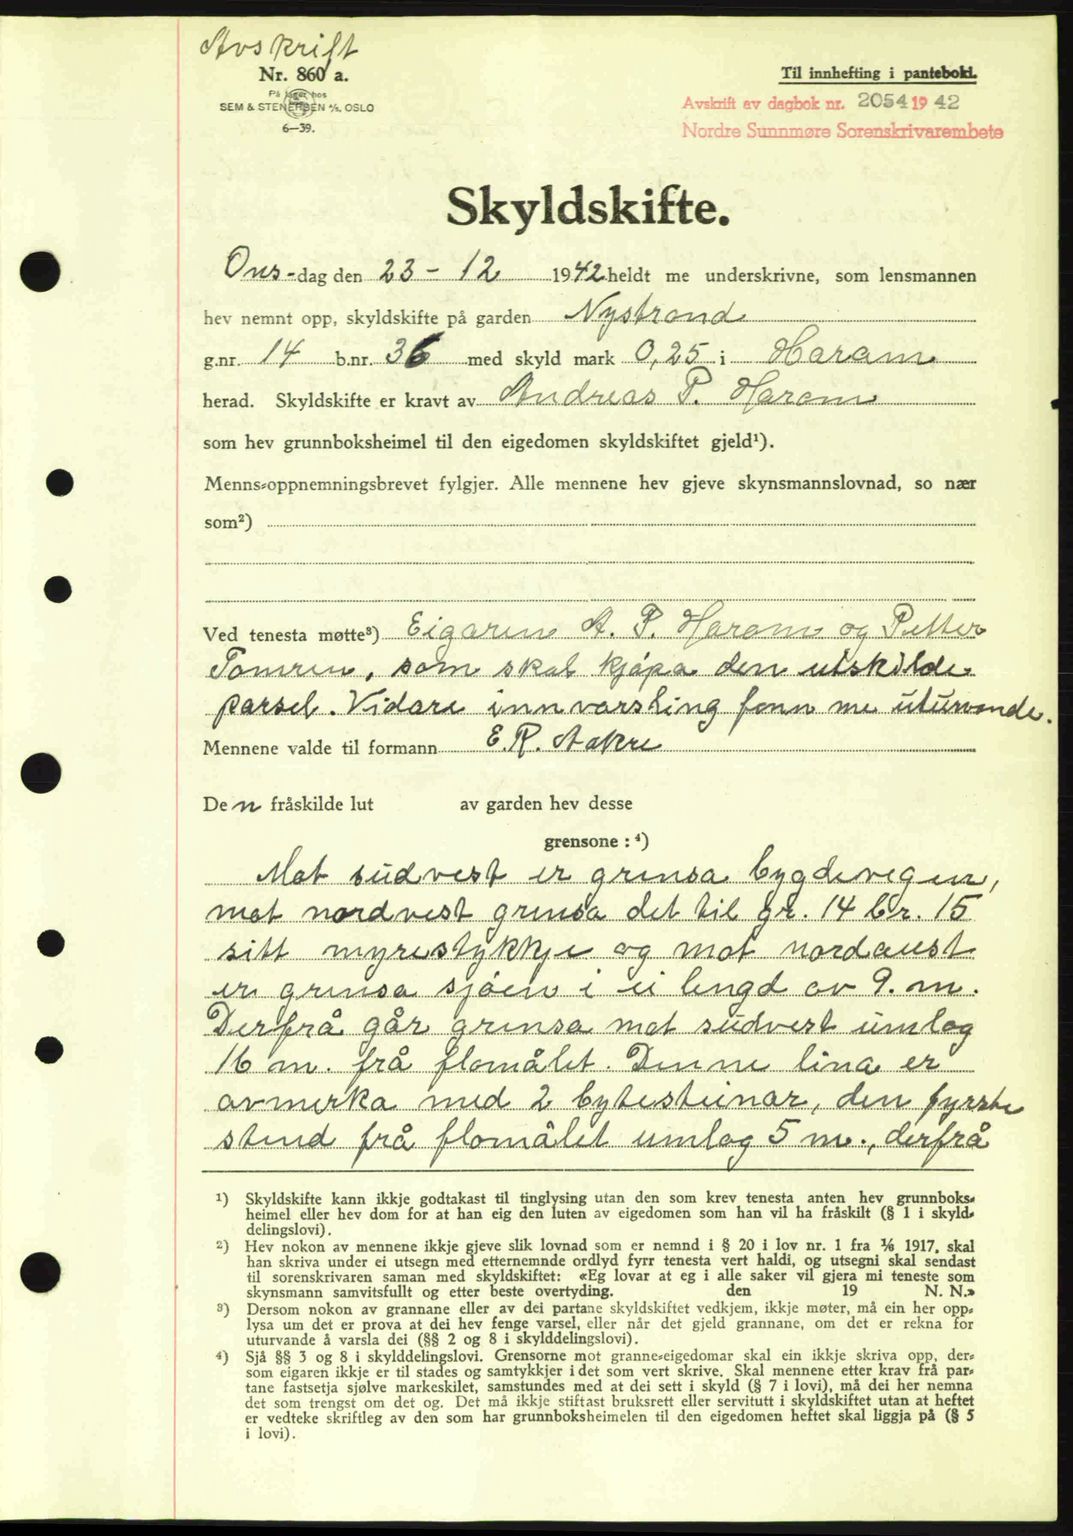 Avskrift
Nr. 860 a.
På lager hos
SEM & STENERSEN A/S, OSLO
6—39.
Til innhefting i pantebok.
Avskrift av dagbok nr. 2054 19 42
Nordre Sunnmøre Sorenskrivarembete
Skyldskifte.
Ons-dag den 23 - 12 1942 heldt me underskrivne, som lensmannen
hev nemnt opp, skyldskifte på garden Nystrand
g.nr. 14 b.nr. 36 med skyld mark 0,25 i Haram
herad. Skyldskifte er kravt av Andreas P. Haram
som hev grunnboksheimel til den eigedomen skyldskiftet gjeld¹).
Menns-oppnemningsbrevet fylgjer. Alle mennene hev gjeve skynsmannslovnad, so nær
som²)
Ved tenesta møtte³) Eigaren A. P. Haram og Petter
Tomren, som skal kjøpa den utskilde
parsel. Vidare innvarsling fann me uturvande.
Mennene valde til formann E. R. Aakre
Den fråskilde lut av garden hev desse
grensone : ⁴)
Mot sudvest er grensa bygdevegen,
mot nordvest grensa det til gr. 14 br. 15
sitt myrestykkje og mot nordaust
er grensa sjøen i ei lengd av 9. m.
Derfrå går grensa mot sudvest umlag
16 m. frå flomålet. Denne lina er
avmerka med 2 bytesteinar, den fyrste
stend frå flomålet umlag 5 m., derfrå
¹) Skyldskifte kann ikkje godtakast til tinglysing utan den som krev tenesta anten hev grunnboks-
heimel eller hev dom for at han eig den luten av eigedomen som han vil ha fråskilt (§ 1 i skyld-
delingslovi).
²) Hev nokon av mennene ikkje gjeve slik lovnad som er nemnd i § 20 i lov nr. 1 fra ⅙ 1917, skal
han skriva under ei utsegn med etternemnde ordlyd fyrr tenesta vert haldi, og utsegni skal sendast
til sorenskrivaren saman med skyldskiftet: «Eg lovar at eg i alle saker vil gjera mi teneste som
skynsmann samvitsfullt og etter beste overtyding. den 19 N. N.»
³) Dersom nokon av grannane eller av dei partane skyldskiftet vedkjem, ikkje møter, må ein her opp-
lysa um det er prova at dei hev fenge varsel, eller når det gjeld grannane, om det er rekna for
uturvande å varsla dei (§§ 2 og 8 i skylddelingslovi).
⁴) Sjå §§ 3 og 8 i skylddelingslovi. Grensorne mot granne-eigedomar skal ein ikkje skriva opp, der-
som eigaren ikkje er til stades og samtykkjer i det som vert skrive. Skal mennene etter krav frå par-
tane fastsetja sjølve markeskilet, samstundes med at dei sett i skyld (§ 7 i lovi), må dei her nemna
det som trengst om det og. Det må ikkje stiftast bruksrett eller servitutt i skyldskiftet utan at heftet
er vedteke skriftleg av den som har grunnboksheimelen til den eigedomen heftet skal liggja på (§ 5
i lovi).